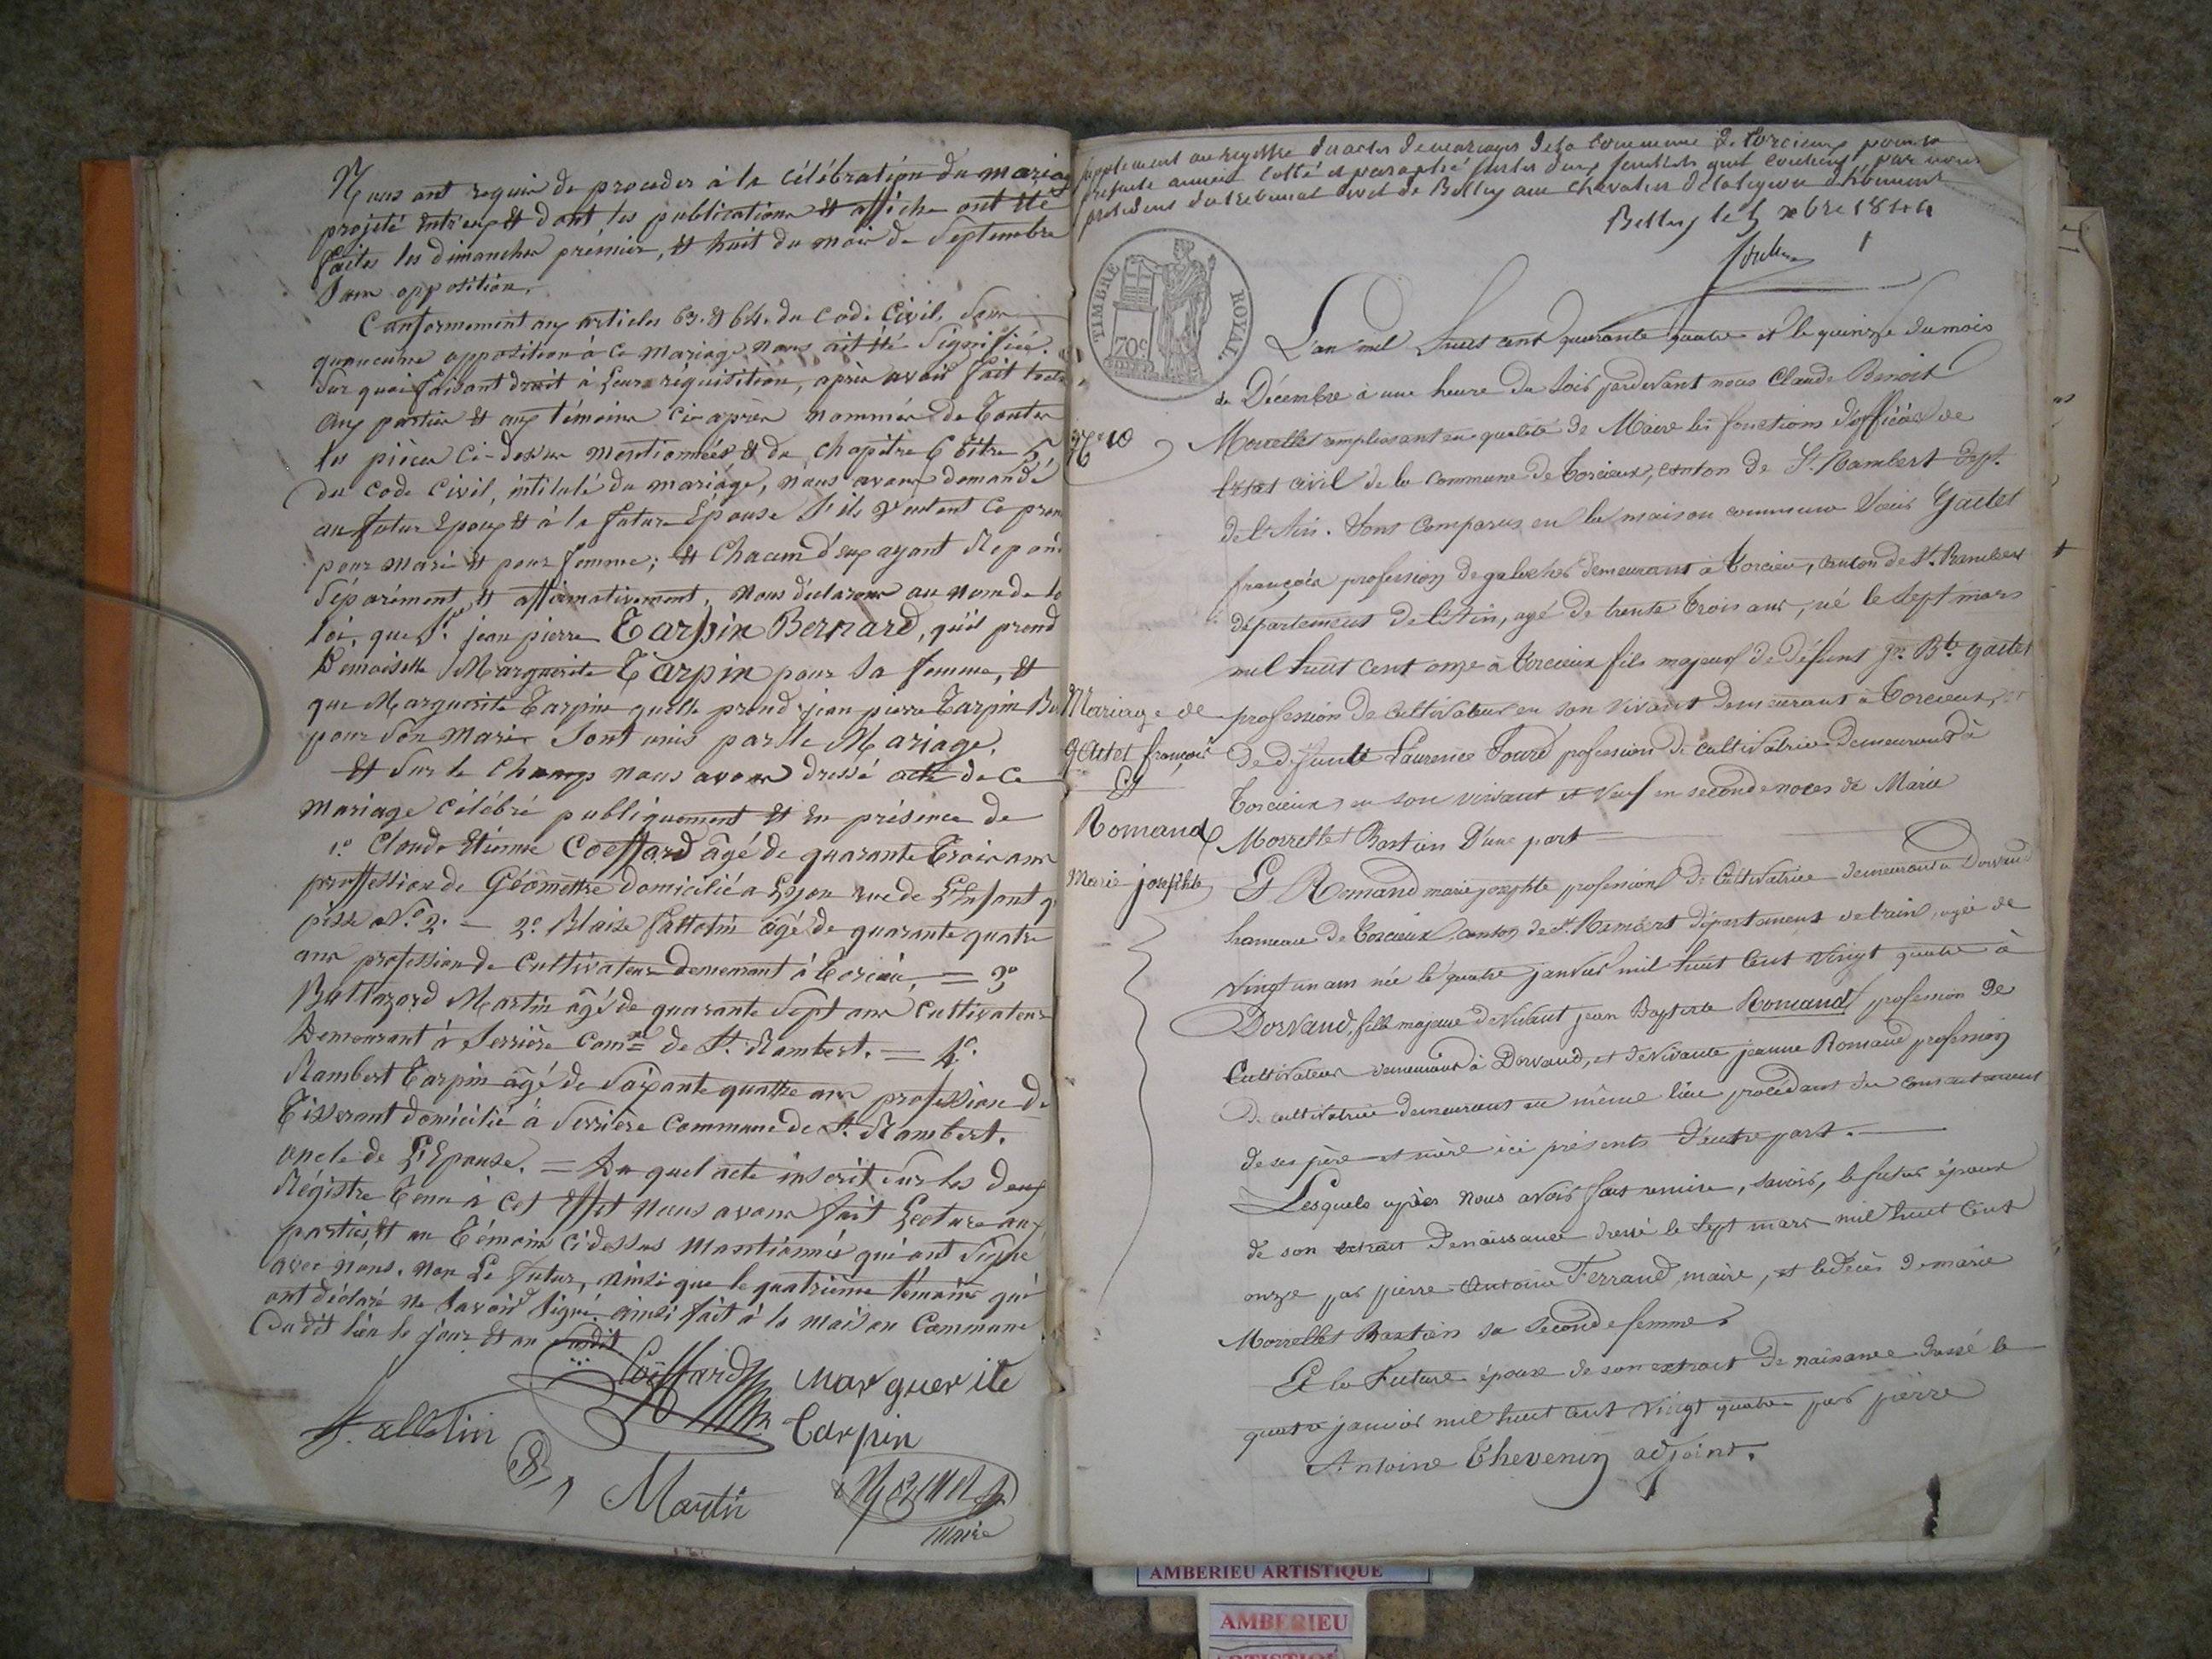 Nous ont requis de procéder à la célébration du mariag
projeté entr'eux et dont les publications et affiche ont été
faites les dimanches prémier, et huit du mois de Septembre
Sans opposition.
Conformement aux articles 63. et 64. du Code Civil, Sans
qu'aucune opposition à ce mariage nous ait été Signifiée.
Sur quoi faisant droit à Leurs réquisition, après avoir fait lectu
aux parties et aux témoins ci-après nommés de toutes
les pièces ci-dessus mentionnées et du chapitre 6 titre 5
du Code Civil, intitulé du mariage, nous avons demandé
au futur Epoux et à la future Epouse S'ils veulent Ce pren
pour mari et pour femme; et Chacun d'eux ayant Repon
Séparément et affirmativement, nous déclarons au nom de la
loi, que Sr. jean pierre Tarpin Bernard, qu'il prend
Démoiselle Marguerite Tarpin pour Sa femme, et
que Marguerite Tarpin quelle prend jean pierre Tarpin Be
pour Son Mari Sont unis par le Mariage.
Et Sur le Champ nous avons dressé acte de ce
Mariage Célébré publiquement et en présence de
1.º Claude Etienne Coeffard âgé de quarante trois ans
proffession de Géomettre domicilié a Lyon rue de L'Enfant q
pisse Nº 2. — 2.º Blaise fallotin âgé de quarante quatre
ans profession de Cultivateur demeurant à Torcieu, = 3º
Balthazard Martin âgé de quarante Sept ans Cultivateur
Demeurant à Serrière Comne de St. Rambert. = 4º.
Rambert Tarpin âgé de Soixante quattre ans profession de
Tisserant domicilié à Serrière Commune de St. Rambert.
oncle de L'Epouse. = Du quel acte inscrit Sur les deux
Régistre tenu à Cet Effet nous avons fait Lecture aux
parties, et au témoins cidessus Mantionnés qui ont Signé
avec nous, non Le futur, ainsi que le quatrième témoins qui
ont déclaré ne Savoir Signé. ainsi fait à la maison Commune
Du dit lieu le jour et an Susdit
Coëffard Marguerite
f. allotin Tarpin
8
Martin
Maire
Supplement au registre des actes de mariages de la Commune de Torcieux pour la
presente année Cotté et paraphé sur les deux feuillets qu'il contient, par nous
president du tribunal civil de Belley aux Chevalier de la legion d'honneur
Belley le 5 xbre 1844
1
TIMBRE ROYAL.
70c
L'an mil huit cent quarante quatre et le quinze du mois
de Décembre à une heure du Soir pardevant nous Claude Benoit
Nº 10
Morellet remplissant en qualité de Maire les fonctions d'officier de
L'état civil de la commune de Torcieux, canton de St. Rambert dépt.
de l'Ain. Sont Comparus en la maison commune Sieur Gaitet
françois profession de galocher demeurant à Torcieu, canton de St. Rambert
département de l'Ain, agé de trente trois ans, né le Sept mars
mil huit cent onze à Torcieux fils majeur de défunt Jn. Bte. gaitet
Mariage de
profession de Cultivateur en Son vivant demeurant à Torcieux, et
gaitet françois
de defunte Laurence Tourd profession de cultivatrice demeurant à
Et
Torcieux, en Son vivant et Veuf en seconde noces de Marie
Romand
Morrellet Bastien D'une part
Marie josephte
Et Romand marie josephte profession de Cultivatrice demeurant à Dorvand
hameau de Torcieux, canton de St. Rambert département de l'ain, agée de
vingt un ans née le quatre janvier mil huit Cent Vingt quatre à
Dorvand, fille majeure de vivant jean Baptiste Romand profession de
Cultivateur demeurant à Dorvand, et de vivante jeanne Romand profession
de cultivatrice demeurant au même lieu procédant du consentement
de ses père et mère ici présents d'autre part.
Lesquels après nous avoir fait remise, Savoir, le futur époux
de son extrait de naissance dressé le Sept mars mil huit Cent
onze par pierre Antoine Ferrand maire, et le décès de marie
Morrellet Bastien sa seconde femme.
Et la Future épouse de son extrait de naissance dressé le
quatre janvier mil huit cent vingt quatre par pierre
Antoine Thevenin adjoint.
AMBERIEU ARTISTIQUE
AMBERIEU
ARTISTIQUE